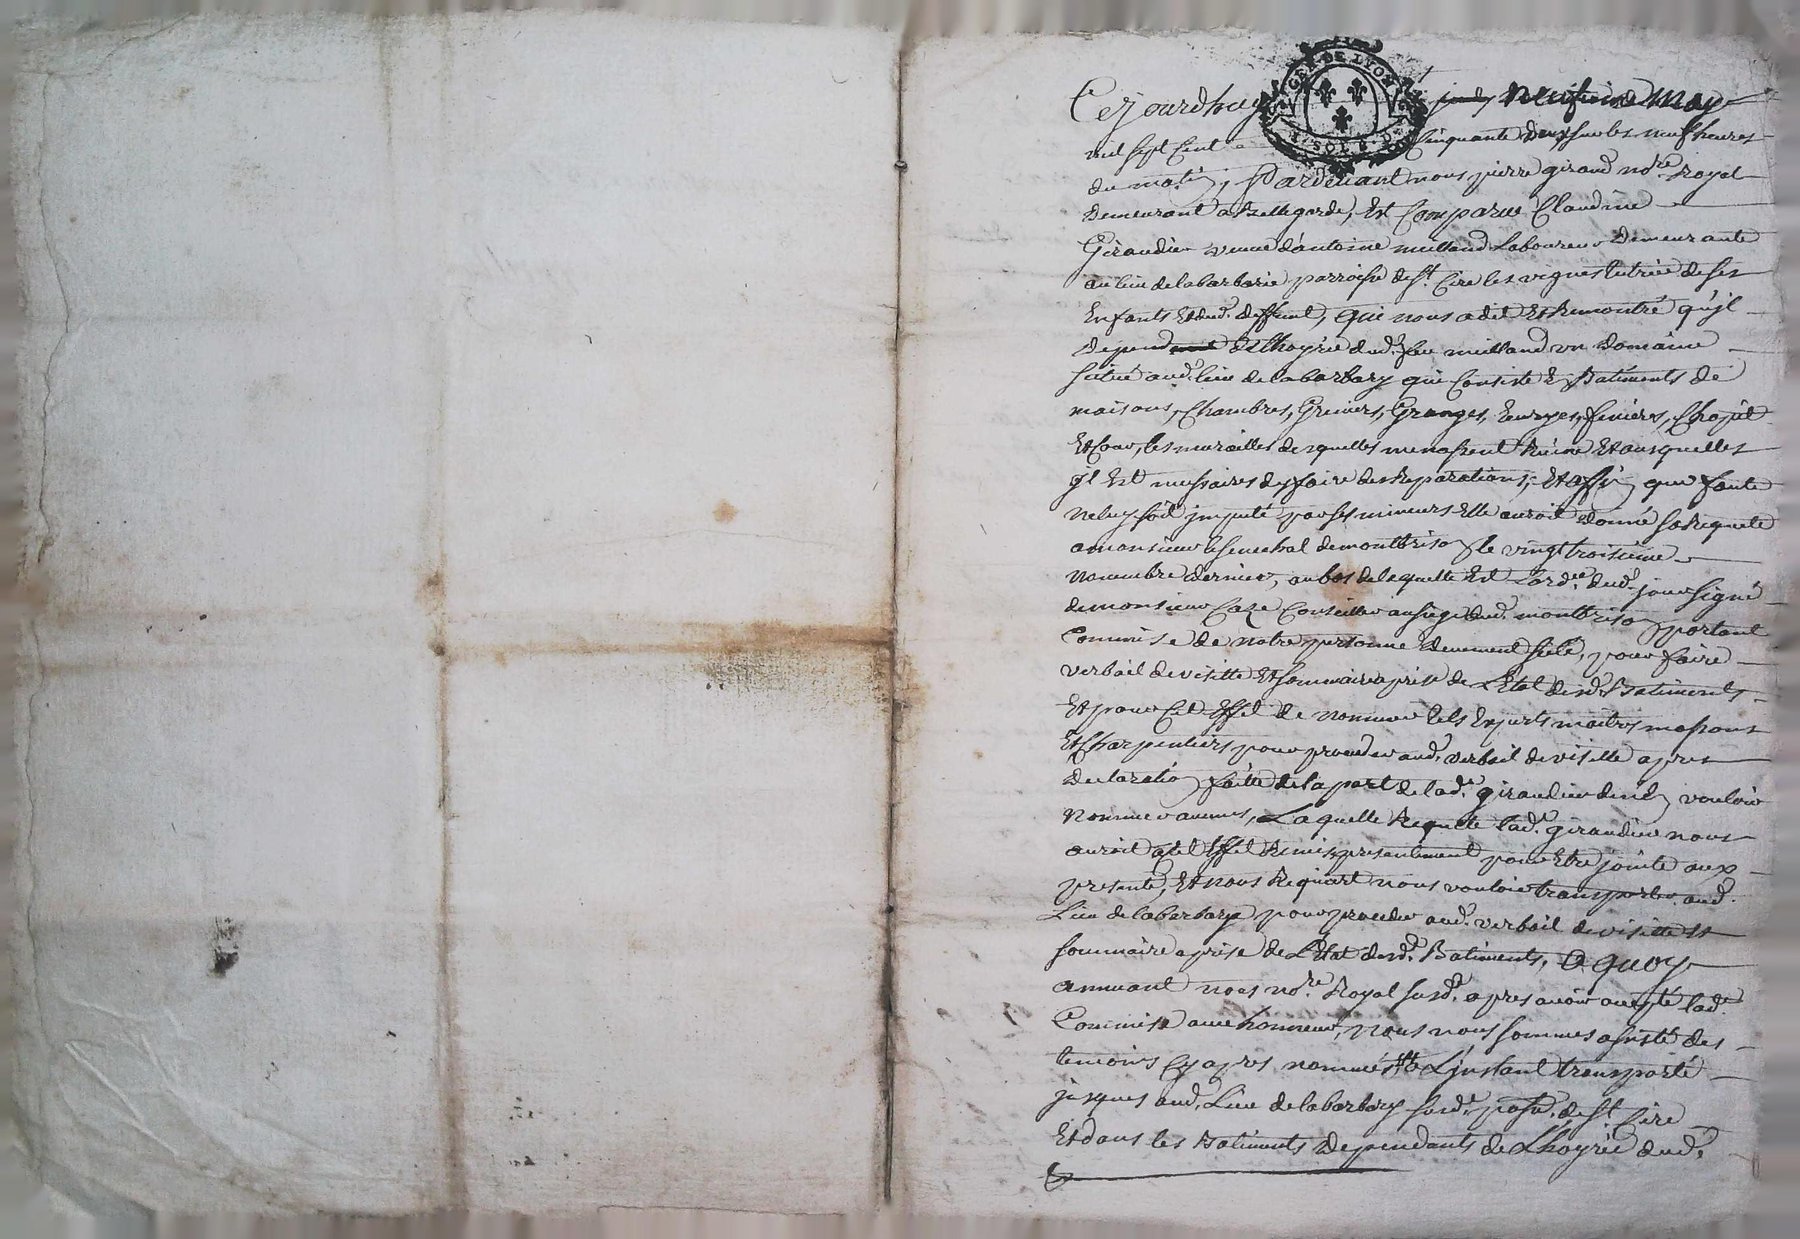 GEN. DE LYON
Cejourdhuy neufieme may
mil sept cent cinquante deux sur les neuf heures
du matin, Pardevant nous pierre giraud no.re Royal
Demeurant a Bellegarde, Est Comparue Claudine
Giraudier veuve d'antoine milland Laboureur Demeurante
au lieu de la barbarie parroisse de S.t Cire les vignes tutrice de ses
Enfants Et dud. deffunt, qui nous a dit Et Remontré qu'jl
Depend de Lhoyrie dud. feu milland un Domaine
situé aud. lieu de la barbary qui Consiste En Batiments de
maisons, Chambres, Greniers, Granges, Ecuryes, fenieres, Chapit
Et Cour, les murailles desquelles menassent Ruine Et ausquelles
jl Est nessaires dy faire des Reparations, Et affin que faute
ne luy soit jmputé par ses mineurs Elle auroit donné sa Requete
a monsieur le senechal de montbrison le vingt troisieme
novembre dernier, au bas de laquelle Est Lord.ce dud. jour signé
de monsieur Caze Conseiller au siege dud. montbrison portant
Commise de notre personne Deuement scelé, pour faire
verbail de visitte Et sommaire aprise de L'Etat desd. Batiments
Et pour Cet Effet de nommer tels Experts maitres massons
Et Charpentiers pour proceder aud. verbail de visitte apres
Declaration faitte de la part de lad.e giraudier den vouloir
nommer aucuns, Laquelle Requete lad.e giraudier nous
auroit a Cet Effet Remis presentement pour Etre jointe aux
presentes, Et nous Requiert nous vouloir transporter aud.
Lieu de la barbary pour proceder aud. verbail de visitte Et
sommaire aprise de L'Etat desd. Batiments, a quoy
annuant nous no.re Royal susd. apres avoir accepté lad.e
Commise avec honneur, nous nous sommes assisté des
temoins Cy apres nommés a L'jnstant transporté
jusques aud. Lieu de la barbary susd.e parr. de S.t Cire
Et dans les Batiments Dependants de Lhoyrie dud.